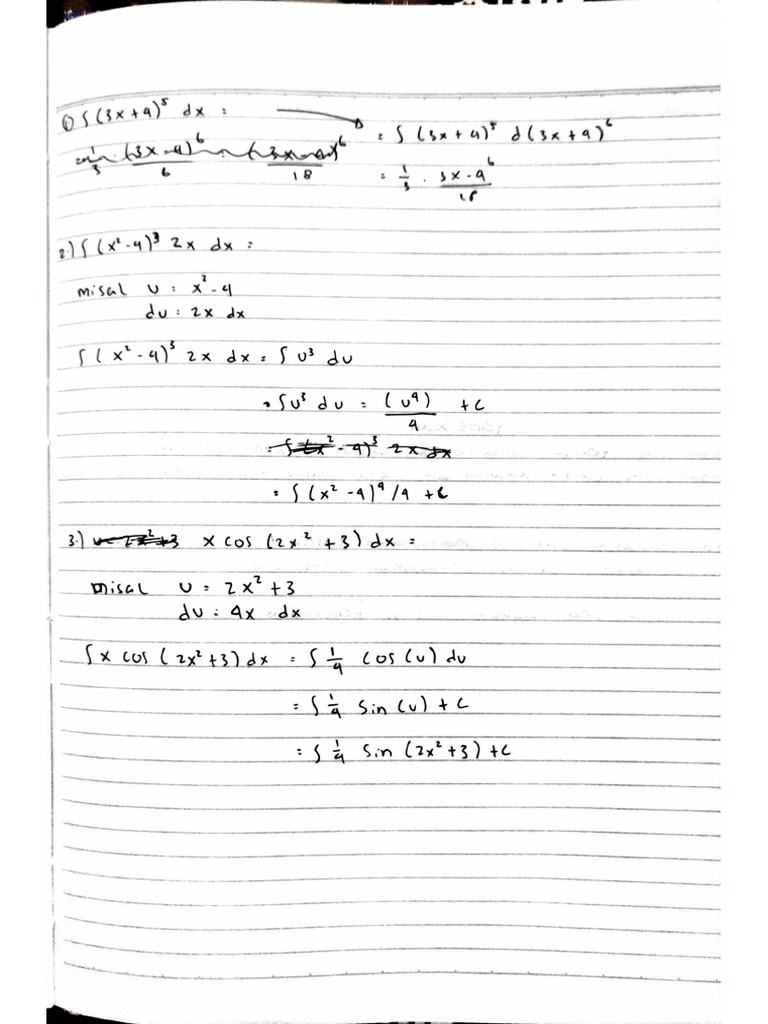 1) ∫ (3x+4)⁵ dx :
= ∫ (3x+4)⁵ d(3x+4)⁶
= 1/3 · 3x-4⁶/18
2.) ∫ (x²-4)³ 2x dx :
misal u : x²-4
du : 2x dx
∫ (x²-4)³ 2x dx = ∫ u³ du
= ∫ u³ du = (u⁴)/4 + C
= ∫ (x²-4)³ 2x dx
= ∫ (x²-4)⁴/4 + C
3.) u = 2x²+3 x cos (2x²+3) dx =
misal u = 2x²+3
du : 4x dx
∫ x cos (2x²+3) dx = ∫ 1/4 cos(u) du
= ∫ 1/4 sin (u) + C
= ∫ 1/4 sin (2x²+3) + C